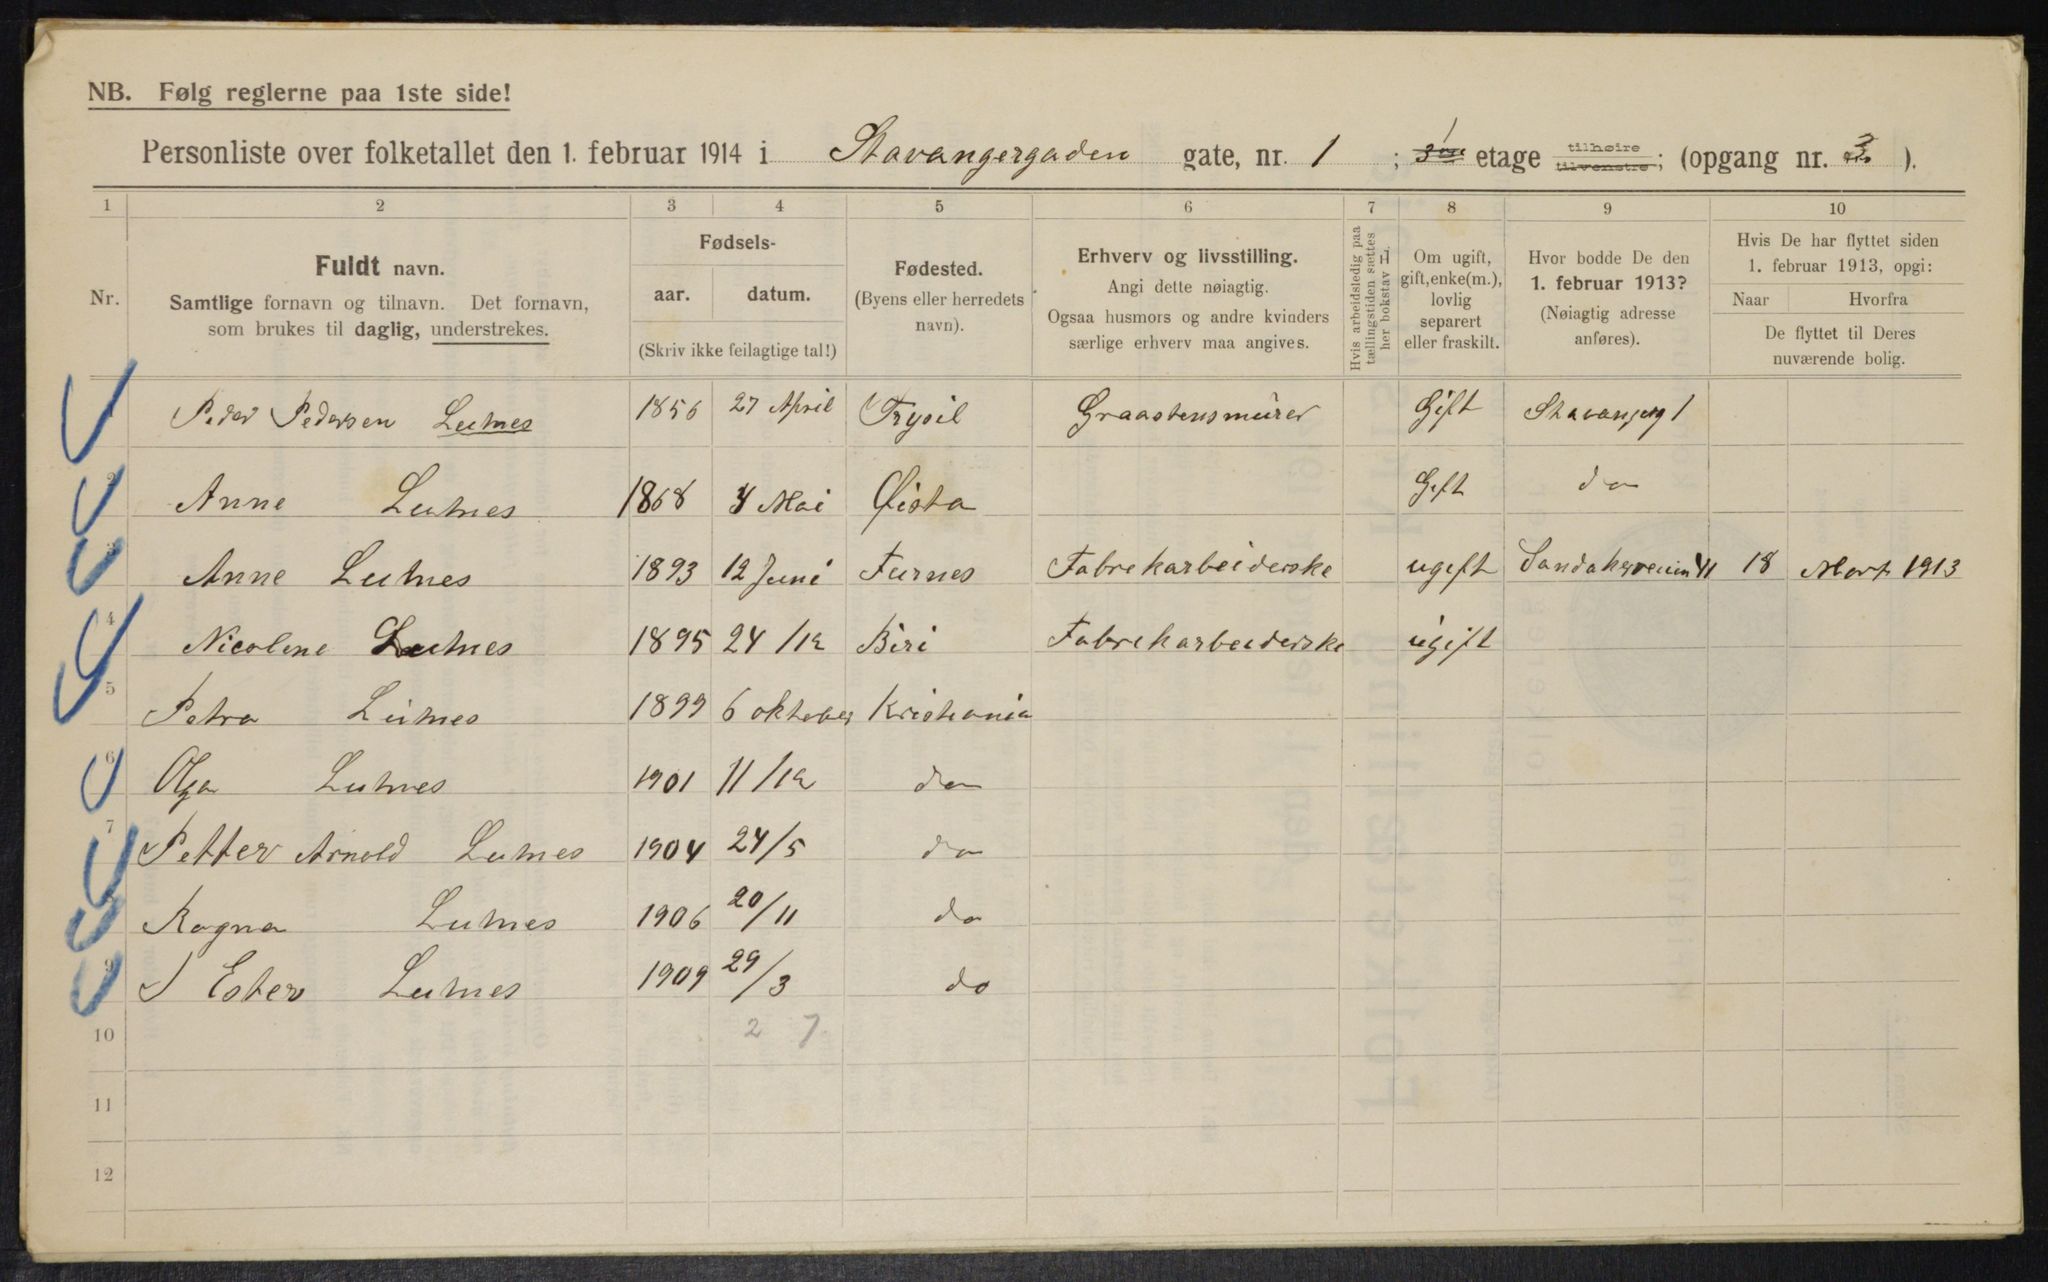 NB. Følg reglerne paa 1ste side!
Personliste over folketallet den 1. februar 1914 i Stavangergaden gate, nr. 1 ; 1 etage tilhøire tilvenstre; (opgang nr. 3 ).
1 2 3 4 5 6 7 8 9 10
Nr.
Fuldt navn.
Samtlige fornavn og tilnavn. Det fornavn,
som brukes til daglig, understrekes.
Fødsels-
aar. datum.
(Skriv ikke feilagtige tal!)
Fødested.
(Byens eller herredets
navn).
Erhverv og livsstilling.
Angi dette nøiagtig.
Ogsaa husmors og andre kvinders
særlige erhverv maa angives.
Hvis arbeidsledig paa
tællingstiden sættes
her bokstav L.
Om ugift,
gift, enke(m.),
lovlig
separert
eller fraskilt.
Hvor bodde De den
1. februar 1913?
(Nøiagtig adresse
anføres).
Hvis De har flyttet siden
1. februar 1913, opgi:
Naar Hvorfra
De flyttet til Deres
nuværende bolig.
Peder Pedersen Lutnes 1856 27 April Trysil Graastensmürer Gift Stavangerg 1
2 Anne Lutnes 1868 4 Mai Øista Gift do
3 Anne Lutnes 1893 12 Juni Furnes Fabrekarbeiderske ugift 11 18 Mart 1913
4 Nicoline Lutnes 1895 24/12 Biri Fabrekarbeiderske ugift
5 Petra Lutnes 1899 6 oktober Kristiania
6 Olga Lutnes 1901 11/12 do
7 Petter Arnold Lutnes 1904 24/5 do
Ragna Lutnes 1906 20/11 do
9 Ester Lutnes 1909 29/3 do
10 2 7
11
12